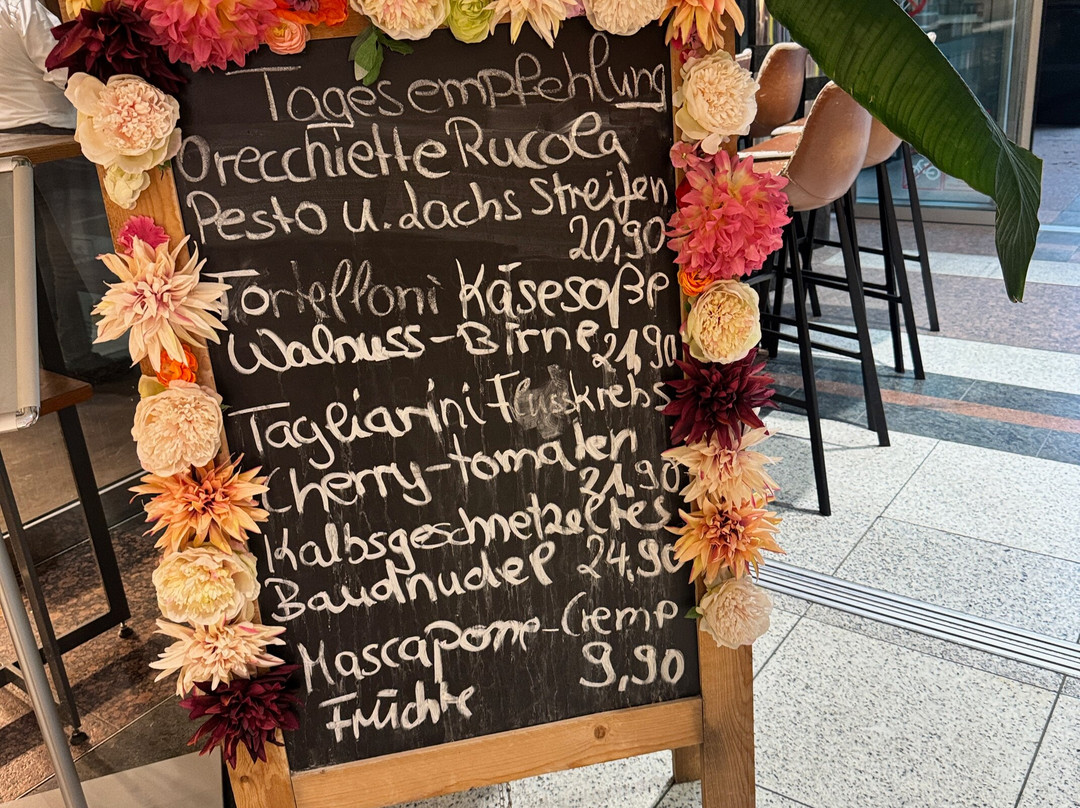 Tagesempfehlung
Orecchiette Rucola
Pesto u. dachs Streifen
20,90
Tortelloni Käsesoße
Walnuss-Birne 21,90
Tagliarini Flusskrebs
Cherry-tomaten
21,90
Kalbsgeschnetzeltes
Baudnudel 24,90
Mascapone-Creme
Früchte 9,90